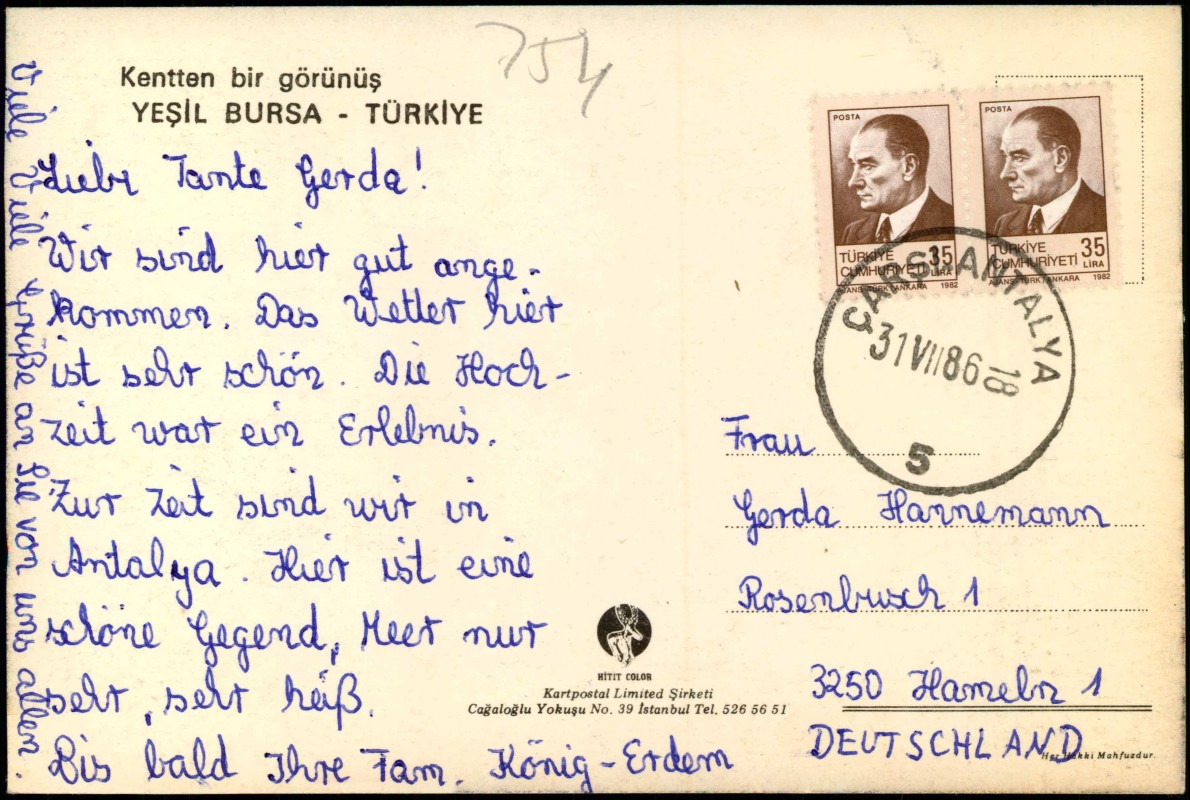 754
Kentten bir görünüş
YEŞİL BURSA - TÜRKİYE
Liebe Tante Gerda!
Wir sind hier gut ange-
kommen. Das Wetter hier
ist sehr schön. Die Hoch-
zeit war ein Erlebnis.
Zur Zeit sind wir in
Antalya. Hier ist eine
schöne Gegend, Meer nur
sehr, sehr heiß.
Bis bald Ihre Fam. König-Erdem
Viele Viele Grüße an Sie von uns allen.
POSTA
TÜRKİYE 35
CUMHURİYETİ LİRA
AJANS-TÜRK/ANKARA 1982
POSTA
TÜRKİYE 35
CUMHURİYETİ LİRA
AJANS-TÜRK/ANKARA 1982
ÇARŞI ANTALYA
31 VII 86 18
5
Frau
Gerda Hannemann
Rosenbusch 1
3250 Hameln 1
DEUTSCHLAND
HİTİT COLOR
Kartpostal Limited Şirketi
Cağaloğlu Yokuşu No. 39 İstanbul Tel. 526 56 51
Her Hakkı Mahfuzdur.